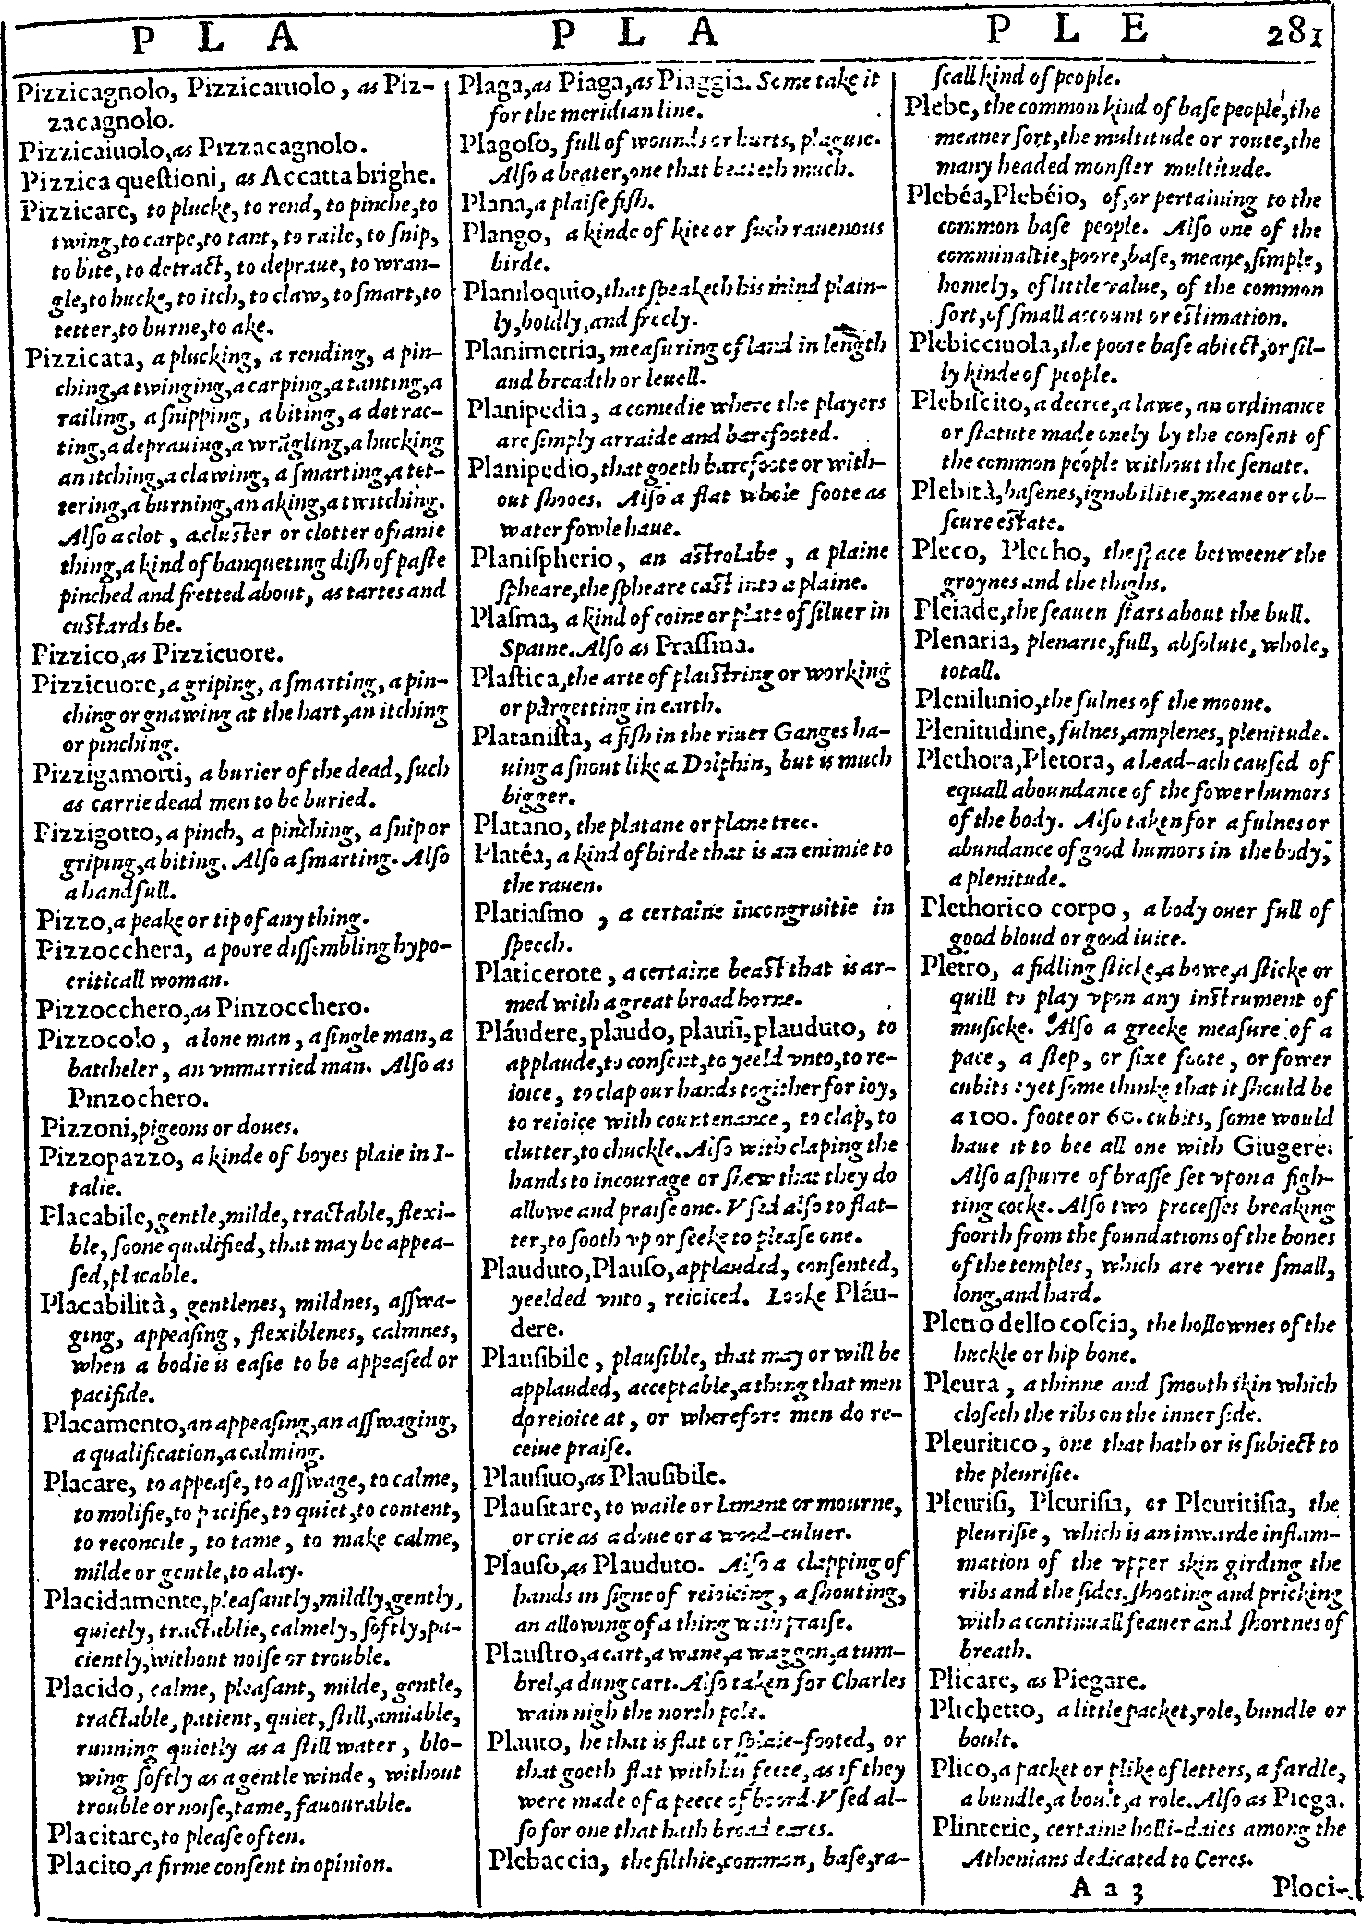 P L A
P L A
P L E
281
Pizzicagnolo, Pizzicaruolo, as Piz-
zacagnolo.
Pizzicaiuolo, as Pizzacagnolo.
Pizzica questioni, as Accatta brighe.
Pizzicare, to plucke, to rend, to pinche, to
twing, to carpe, to tant, to raile, to snip,
to bite, to detract, to depraue, to wran-
gle, to hucke, to itch, to claw, to smart, to
tetter, to burne, to ake.
Pizzicata, a plucking, a rending, a pin-
ching, a twinging, a carping, a tanting, a
railing, a snipping, a biting, a detrac-
ting, a deprauing, a wrãgling, a hucking
an itching, a clawing, a smarting, a tet-
tering, a burning, an aking, a twitching.
Also a clot, a cluster or clotter of anie
thing, a kind of banqueting dish of paste
pinched and fretted about, as tartes and
custards be.
Pizzico, as Pizzicuore.
Pizzicuore, a griping, a smarting, a pin-
ching or gnawing at the hart, an itching
or pinching.
Pizzigamorti, a burier of the dead, such
as carrie dead men to be buried.
Pizzigotto, a pinch, a pinching, a snip or
griping, a biting. Also a smarting. Also
a handfull.
Pizzo, a peake or tip of any thing.
Pizzocchera, a poure dissembling hypo-
criticall woman.
Pizzocchero, as Pinzocchero.
Pizzocolo, a lone man, a single man, a
batcheler, an vnmarried man. Also as
Pinzochero.
Pizzoni, pigeons or doues.
Pizzopazzo, a kinde of boyes plaie in I-
talie.
Placabile, gentle, milde, tractable, flexi-
ble, soone qualified, that may be appea-
sed, plicable.
Placabilità, gentlenes, mildnes, asswa-
ging, appeasing, flexiblenes, calmnes,
when a bodie is easie to be appeased or
pacifide.
Placamento, an appeasing, an asswaging,
a qualification, a calming.
Placare, to appease, to asswage, to calme,
to molifie, to pacifie, to quiet, to content,
to reconcile, to tame, to make calme,
milde or gentle, to alay.
Placidamente, pleasantly, mildly, gently,
quietly, tractablie, calmely, softly, pa-
ciently, without noise or trouble.
Placido, calme, pleasant, milde, gentle,
tractable, patient, quiet, still, amiable,
running quietly as a still water, blo-
wing softly as a gentle winde, without
trouble or noise, tame, fauourable.
Placitare, to please often.
Placito, a firme consent in opinion.
Plaga, as Piaga, as Piaggia. Some take it
for the meridian line.
Plagoso, full of wounds or hurts, plaguie.
Also a beater, one that beateth much.
Plana, a plaise fish.
Plango, a kinde of kite or such rauenous
birde.
Planiloquio, that speaketh his mind plain-
ly, boldly, and freely.
Planimetria, measuring of land in length
and breadth or leuell.
Planipedia, a comedie where the players
are simply arraide and barefooted.
Planipedio, that goeth barefoote or with-
out shooes. Also a flat whole foote as
water fowle haue.
Planispherio, an astrolabe, a plaine
spheare, the spheare cast into a plaine.
Plasma, a kind of coine or plate of siluer in
Spaine. Also as Prassina.
Plastica, the arte of plaistring or working
or pargetting in earth.
Platanista, a fish in the riuer Ganges ha-
uing a snout like a Dolphin, but is much
bigger.
Platano, the platane or plane tree.
Platéa, a kind of birde that is an enimie to
the rauen.
Platiasmo, a certaine incongruitie in
speech.
Platicerote, a certaine beast that is ar-
med with a great broad horne.
Pláudere, plaudo, plausi, plauduto, to
applaude, to consent, to yeeld vnto, to re-
ioice, to clap our hands togither for ioy,
to reioice with countenance, to clap, to
clutter, to chuckle. Also with claping the
hands to incourage or shew that they do
allowe and praise one. Vsed also to flat-
ter, to sooth vp or seeke to please one.
Plauduto, Plauso, applauded, consented,
yeelded vnto, reioiced. Looke Pláu-
dere.
Plausibile, plausible, that may or will be
applauded, acceptable, a thing that men
do reioice at, or wherefore men do re-
ceiue praise.
Plausiuo, as Plausibile.
Plausitare, to waile or lament or mourne,
or crie as a doue or a wood-culuer.
Plauso, as Plauduto. Also a clapping of
hands in signe of reioicing, a shouting,
an allowing of a thing with praise.
Plaustro, a cart, a wane, a waggon, a tum-
brel, a dung cart. Also taken for Charles
wain nigh the north pole.
Plauto, he that is flat or splaie-footed, or
that goeth flat with his feete, as if they
were made of a peece of boord. Vsed al-
so for one that hath broad eares.
Plebaccia, the filthie, common, base, ra-
scall kind of people.
Plebe, the common kind of base people, the
meaner sort, the multitude or route, the
many headed monster multitude.
Plebéa, Plebéio, of, or pertaining to the
common base people. Also one of the
comminaltie, poore, base, meane, simple,
homely, of little value, of the common
sort, of small account or estimation.
Plebicciuola, the poore base abiect, or sil-
ly kinde of people.
Plebiscito, a decree, a lawe, an ordinance
or statute made onely by the consent of
the common people without the senate.
Plebità, basenes, ignobilitie, meane or ob-
scure estate.
Pleco, Plecho, the space betweene the
groynes and the thighs.
Pleiade, the seauen stars about the bull.
Plenaria, plenarie, full, absolute, whole,
totall.
Plenilunio, the fulnes of the moone.
Plenitudine, fulnes, amplenes, plenitude.
Plethora, Pletora, a head-ach caused of
equall aboundance of the fower humors
of the body. Also taken for a fulnes or
abundance of good humors in the body,
a plenitude.
Plethorico corpo, a body ouer full of
good bloud or good iuice.
Pletro, a fidling sticke, a bowe, a sticke or
quill to play vpon any instrument of
musicke. Also a greeke measure of a
pace, a step, or sixe foote, or fower
cubits: yet some thinke that it should be
a 100. foote or 60. cubits, some would
haue it to bee all one with Giugere.
Also a spurre of brasse set vpon a figh-
ting cocke. Also two precesses breaking
foorth from the foundations of the bones
of the temples, which are verie small,
long, and hard.
Pletro dello coscia, the hollownes of the
huckle or hip bone.
Pleura, a thinne and smooth skin which
closeth the ribs on the inner side.
Pleuritico, one that hath or is subiect to
the pleurisie.
Pleurisi, Pleurisia, or Pleuritisia, the
pleurisie, which is an inwarde inflam-
mation of the vpper skin girding the
ribs and the sides, shooting and pricking
with a continuall feauer and shortnes of
breath.
Plicare, as Piegare.
Plichetto, a little packet, role, bundle or
boult.
Plico, a packet or plike of letters, a fardle,
a bundle, a boult, a role. Also as Piega.
Plinterie, certaine holli-daies among the
Athenians dedicated to Ceres.
A a 3
Ploci-